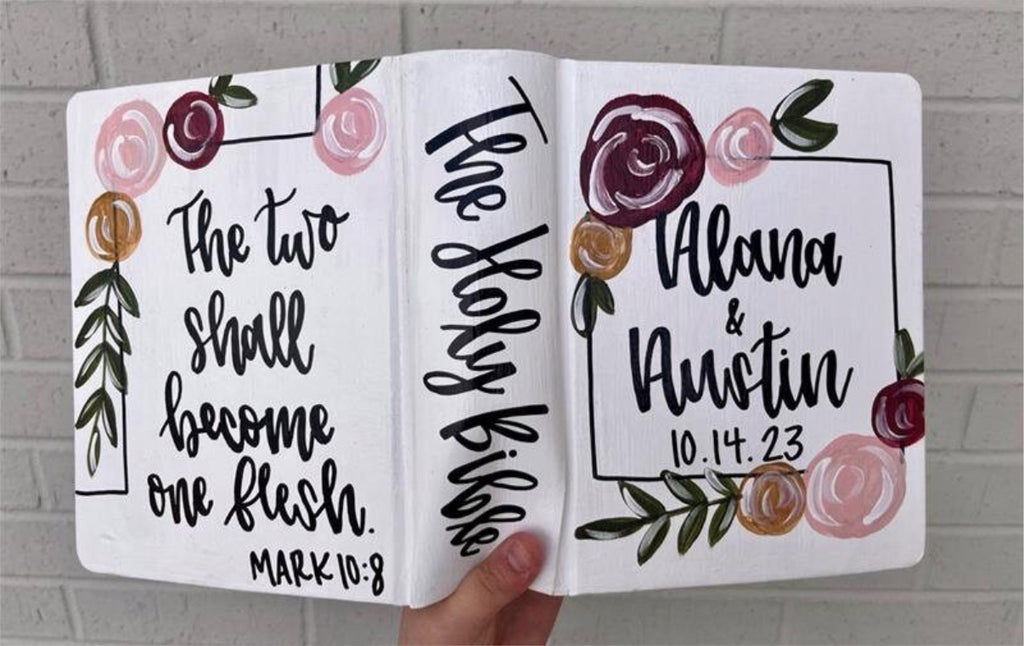 The two
shall
become
one flesh.
MARK 10:8
The Holy Bible
Alana
&
Austin
10.14.23